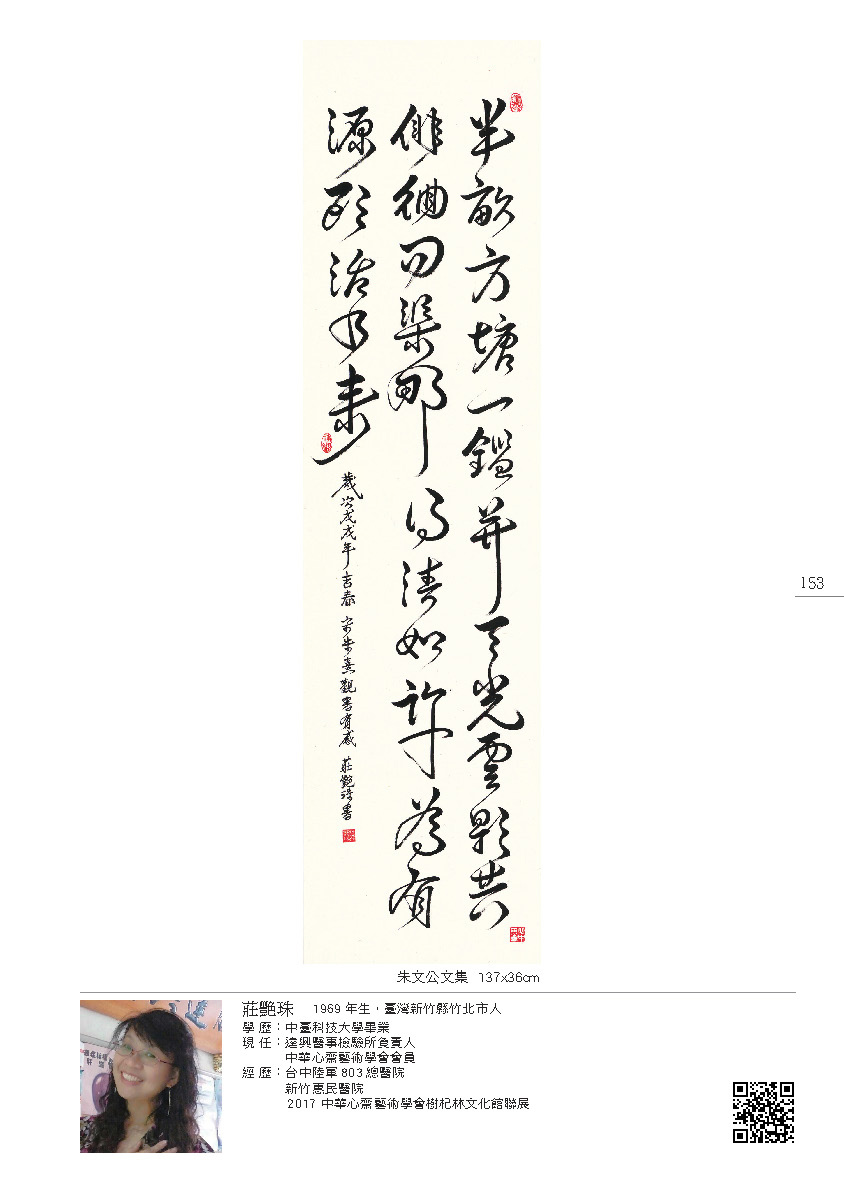 半畝方塘一鑑开天光雲影共
俳徊問渠那得清如許為有
源頭活水來
歲次戊戌年吉春 宋朱熹觀書有感 莊艷珠書
153
朱文公文集 137x36cm
莊艷珠 1969 年生，臺灣新竹縣竹北市人
學 歷：中臺科技大學畢業
現 任：達興醫事檢驗所負責人
中華心齋藝術學會會員
經 歷：台中陸軍 803 總醫院
新竹惠民醫院
2017 中華心齋藝術學會樹杞林文化館聯展